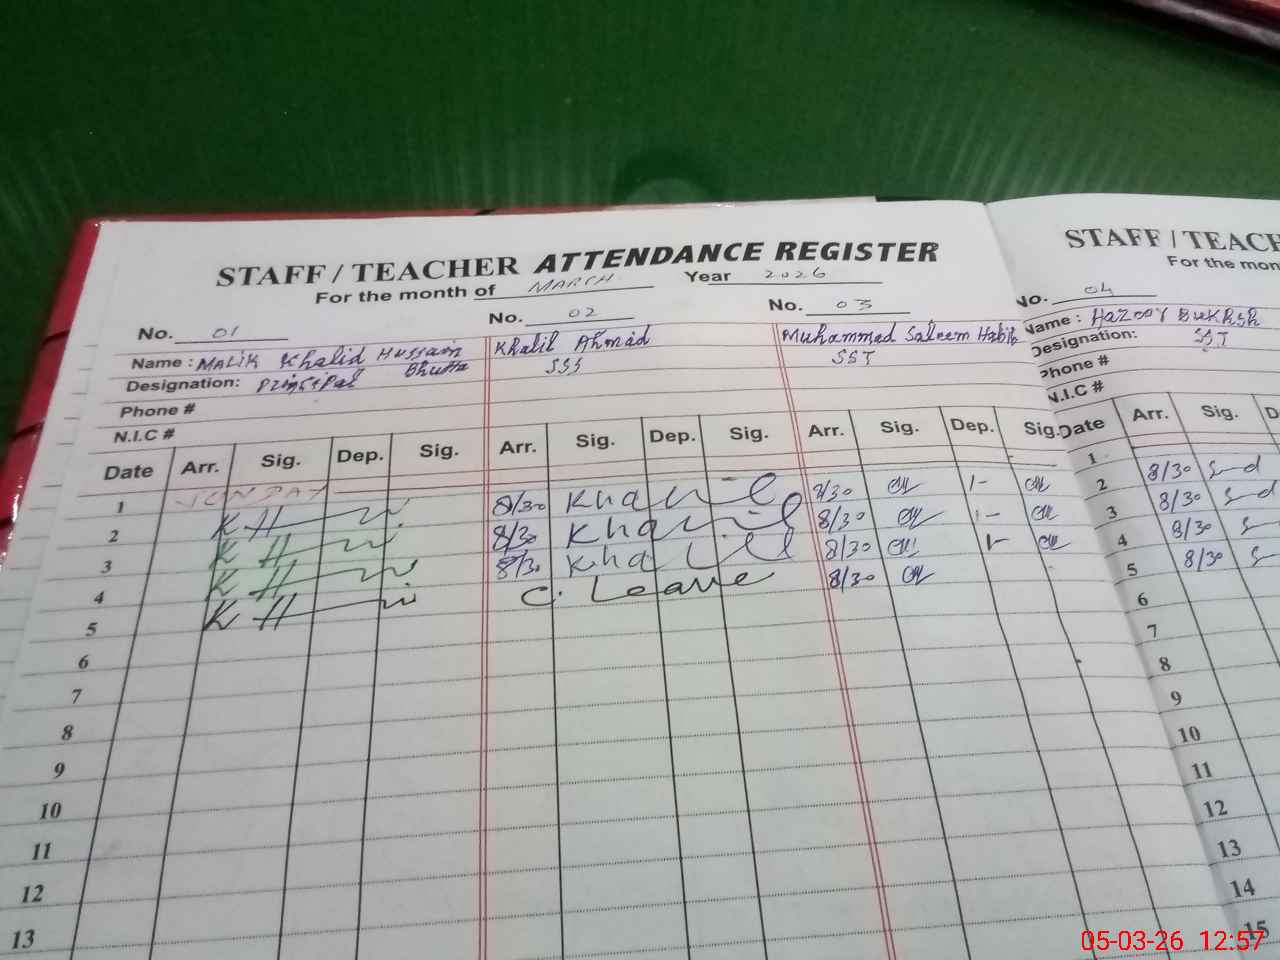 STAFF / TEACHER ATTENDANCE REGISTER
For the month of MARCH Year 2026
No. 01 No. 02 No. 03
Name : MALIK Khalid Hussain Bhutta Khalil Ahmad Muhammad Saleem Habib
Designation: Principal SSS SST
Phone #
N.I.C #
Date Arr. Sig. Dep. Sig. Arr. Sig. Dep. Sig. Arr. Sig. Dep. Sig.
1 SUNDAY
2 KH 8/30 8/30 1-
3 KH 8/30 8/30 1-
4 KH 8/30 8/30 1-
5 KH C. Leave 8/30
6
7
8
9
10
11
12
13
STAFF / TEACH
For the mon
No. 04
Name : HAZOOR BUKHSH
Designation: SST
Phone #
N.I.C #
Date Arr. Sig. D
1
2 8/30
3 8/30
4 8/30
5 8/30
6
7
8
9
10
11
12
13
14
15
05-03-26 12:57